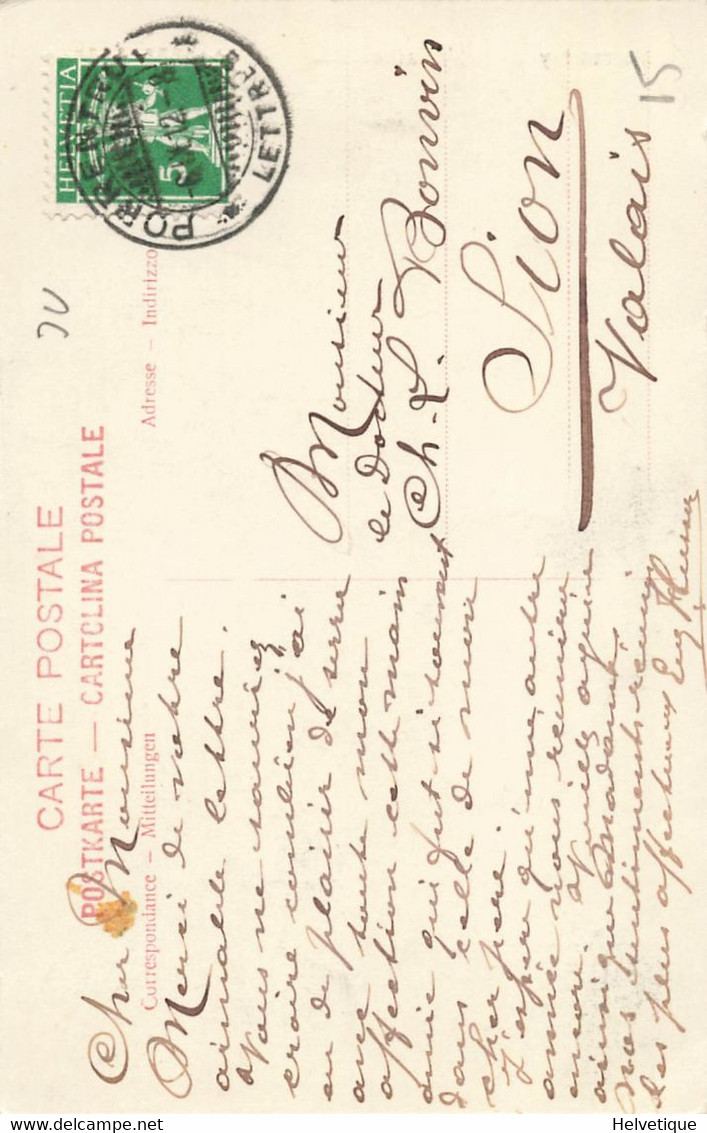 CARTE POSTALE
POSTKARTE — CARTOLINA POSTALE
Correspondance — Mitteilungen
Adresse — Indirizzo
HELVETIA
5
PORRENTRUY
LETTRES
JU
15
Cher Monsieur
Merci de votre
aimable lettre.
Vous ne sauriez
croire combien j'ai
eu de plaisir de serrer
avec toute mon
affection cette main
amie qui fut si souvent
dans celle de mon
cher père.
J'espère qu'une autre
année nous réunira
encore. Veuillez agréer
ainsi que Madame
nos sentiments réunis
les plus affectueux
Monsieur
le Docteur
Ch. L. Bonvin
Sion
Valais
Helvetique